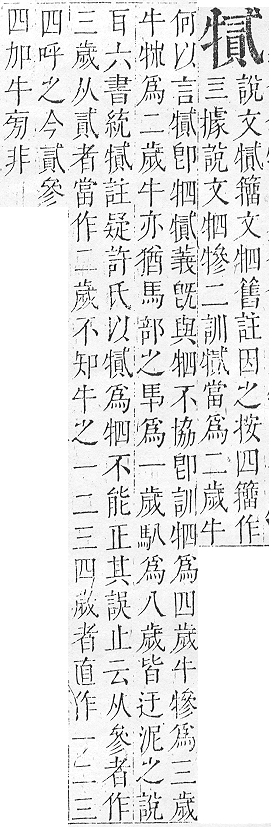 𤛾說文𤛾籀文牭舊註因之按四籀作
三據說文牭犙二訓𤛾當爲二歲牛
何以言𤛾卽牭𤛾義旣與牭不協卽訓牭爲四歲牛犙爲三歲
牛牬爲二歲牛亦猶馬部之爲一歲爲八歲皆迂泥之說
耳六書統𤛾註疑許氏以𤛾爲牭不能正其誤止云从參者作
三歲从貳者當作二歲不知牛之一二三四歲者直作一二三
四呼之今貳參
四加牛旁非